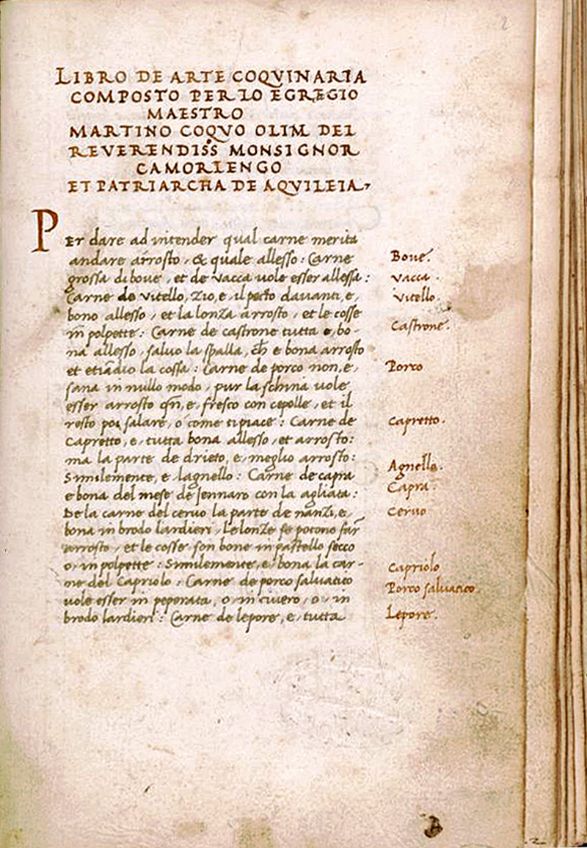 2
LIBRO DE ARTE COQVINARIA
COMPOSTO PER LO EGREGIO
MAESTRO
MARTINO COQVO OLIM DEL
REVERENDISS MONSIGNOR
CAMORLENGO
ET PATRIARCHA DE AQVILEIA,
PEr dare ad intender qual carne merita
andare arrosto, & quale allesso: Carne
grossa di boue, et de vacca vole esser allessa:
Carne de vitello, zio, e, il pecto dauanti, e,
bono allesso, et la lonza arrosto, et le cosse
in polpette: Carne de castrone tutta e, bo-
na allesso, saluo la spalla, ch e bona arrosto
et etiādio la cossa: Carne de porco non, e,
sana in nullo modo, pur la schina vole
esser arrosto qn, e, fresco con cepolle, et il
resto poi salare, o come ti piace: Carne de
Capretto, e, tutta bona allesso, et arrosto:
ma la parte de drieto, e, meglio arrosto:
Similemente, e, lagnello: Carne de capra
e bona del mese de Jennaro con la agliata:
De la carne del ceruo la parte de nanzi, e,
bona in brodo lardieri, Le lonze se potono far
arrosto, et le cosse son bone in pastello secco
o, in polpette: Similemente, e, bona la car-
ne del Capriolo: Carne de porco saluatico
vole esser in peperata, o, in ciuero, o, in
brodo lardieri: Carne de lepore, e, tutta
Boue.
vacca.
vitello.
Castrone.
Porco
Capretto.
Agnello.
Capra.
Ceruo
Capriolo
Porco saluatico.
Lepore.